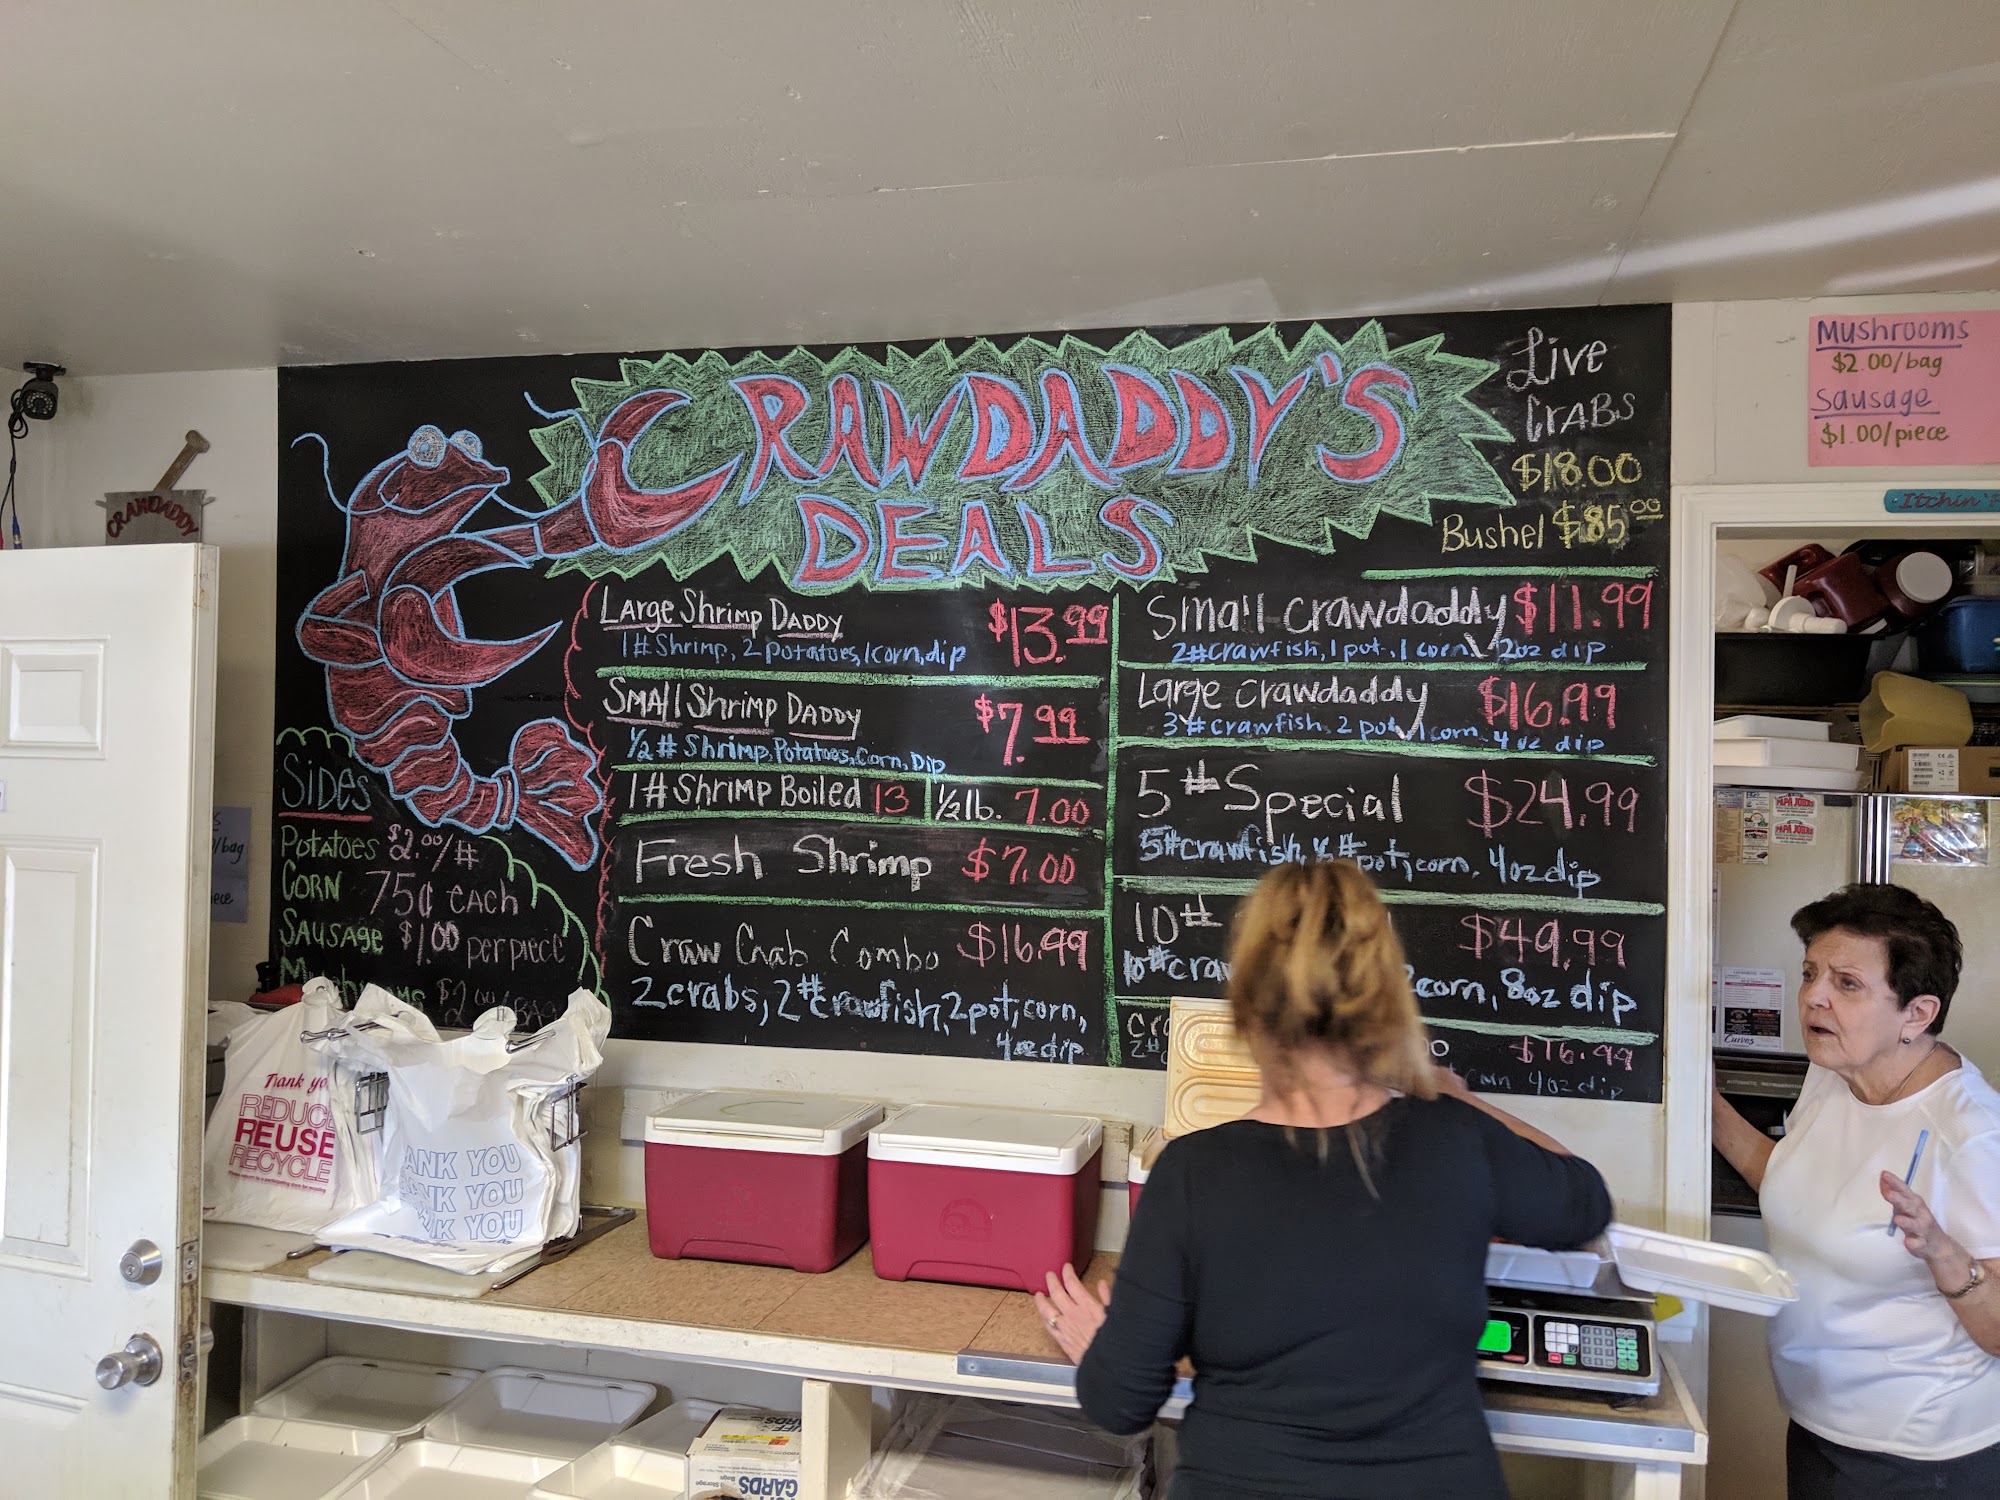 CRAWDADDY'S
DEALS
Live
CRABS
$18.00
Bushel $85.00
Large Shrimp Daddy $13.99
1# Shrimp, 2 potatoes, 1corn, dip
Small Shrimp Daddy $7.99
1/2 # Shrimp, Potatoes, Corn, Dip
1# Shrimp Boiled 13 1/2 lb. 7.00
Fresh Shrimp $7.00
Craw Crab Combo $16.99
2crabs, 2#crawfish, 2pot, corn,
4oz dip
Small Crawdaddy $11.99
2#crawfish, 1 pot, 1 corn, 2oz dip
Large Crawdaddy $16.99
3#crawfish, 2 pot, 1 corn, 4 oz dip
5# Special $24.99
5#crawfish, ½#pot, corn, 4oz dip
10# $49.99
10#craw 2corn, 8oz dip
$16.99
2# 4oz dip
Sides
Potatoes $2.00/#
Corn 75¢ each
Sausage $1.00 per piece
Mushrooms $2.00/BAG
Mushrooms
$2.00/bag
Sausage
$1.00/piece
CRAWDADDY
/bag
iece
Thank yo
REDUC
REUSE
RECYCLE
ANK YOU
ANK YOU
NK YOU
GARDS
PAPA JOHN'S
PAPA JOHN'S
Curves